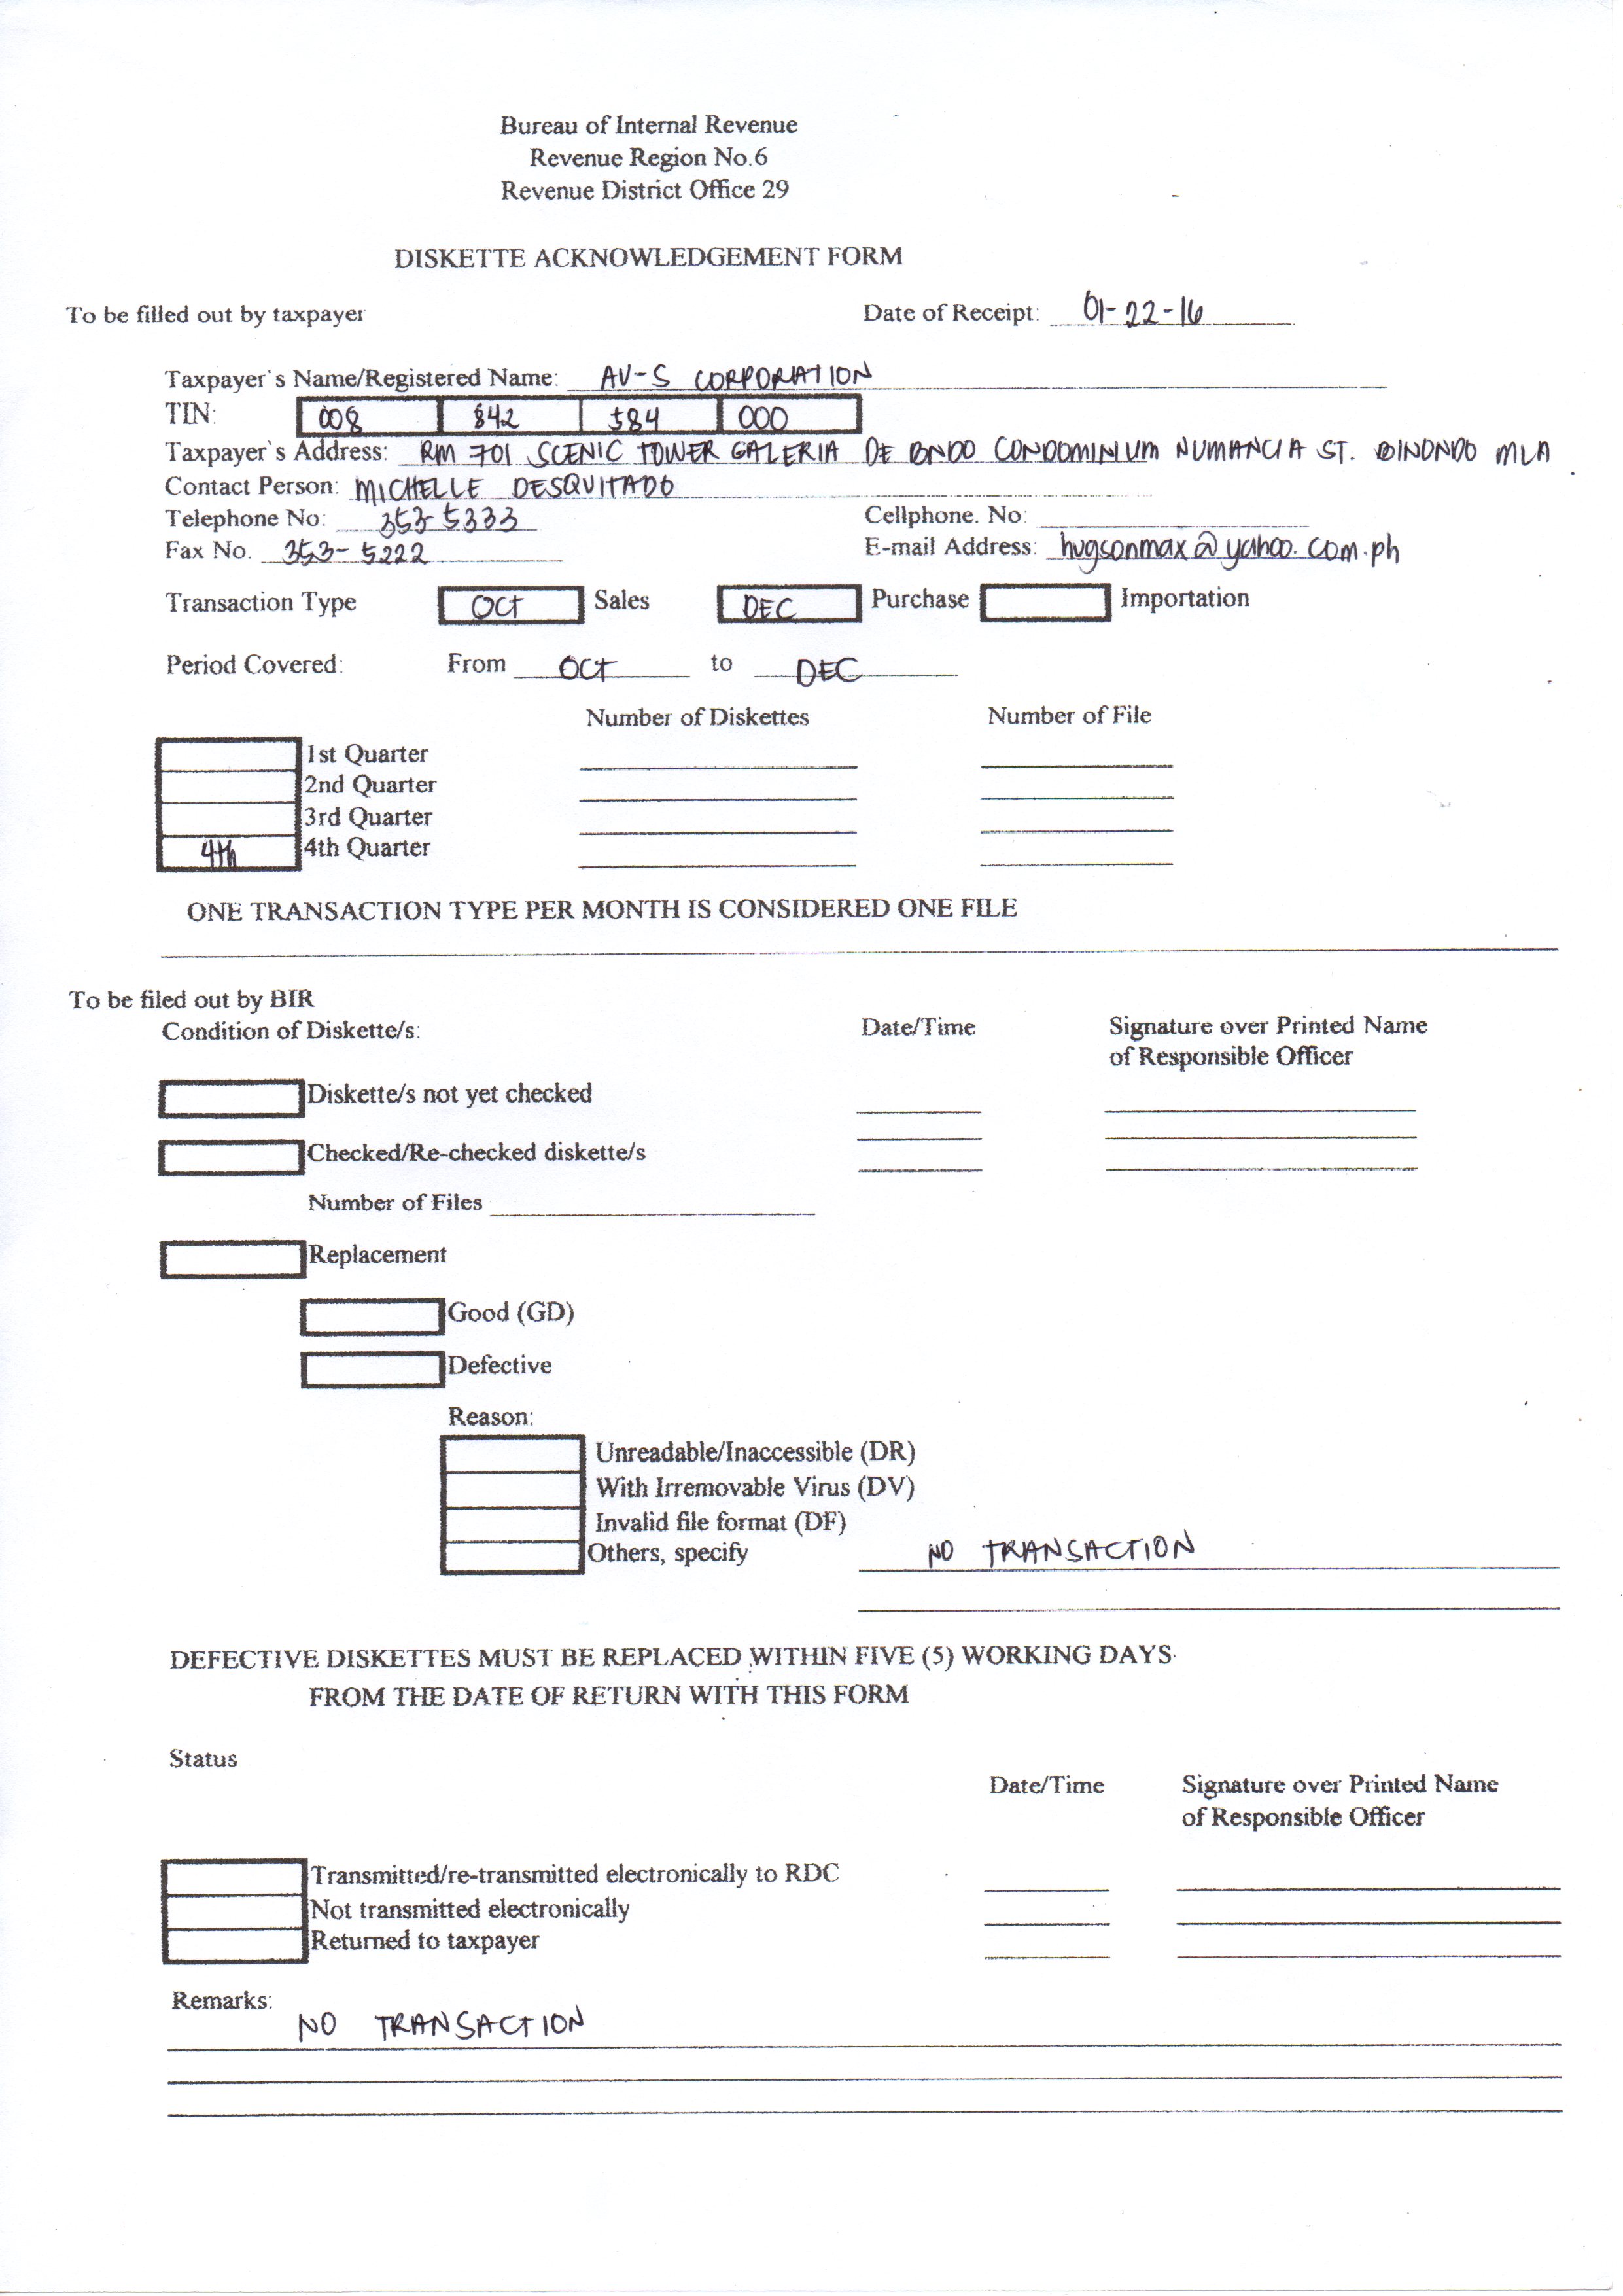 Bureau of Internal Revenue
Revenue Region No.6
Revenue District Office 29
DISKETTE ACKNOWLEDGEMENT FORM
To be filled out by taxpayer Date of Receipt: 01-22-16
Taxpayer's Name/Registered Name: AV-S CORPORATION
TIN: 008 842 584 000
Taxpayer's Address: RM 701 SCENIC TOWER GALERIA DE BNDO CONDOMINIUM NUMANCIA ST. BINONDO MLA
Contact Person: MICHELLE DESQUITADO
Telephone No: 353-5333 Cellphone. No:
Fax No. 353-5222 E-mail Address: hugsonmax@yahoo.com.ph
Transaction Type OCT Sales DEC Purchase Importation
Period Covered: From OCT to DEC
Number of Diskettes Number of File
1st Quarter
2nd Quarter
3rd Quarter
4th 4th Quarter
ONE TRANSACTION TYPE PER MONTH IS CONSIDERED ONE FILE
To be filed out by BIR
Condition of Diskette/s: Date/Time Signature over Printed Name
of Responsible Officer
Diskette/s not yet checked
Checked/Re-checked diskette/s
Number of Files
Replacement
Good (GD)
Defective
Reason:
Unreadable/Inaccessible (DR)
With Irremovable Virus (DV)
Invalid file format (DF)
Others, specify NO TRANSACTION
DEFECTIVE DISKETTES MUST BE REPLACED WITHIN FIVE (5) WORKING DAYS
FROM THE DATE OF RETURN WITH THIS FORM
Status
Date/Time Signature over Printed Name
of Responsible Officer
Transmitted/re-transmitted electronically to RDC
Not transmitted electronically
Returned to taxpayer
Remarks:
NO TRANSACTION